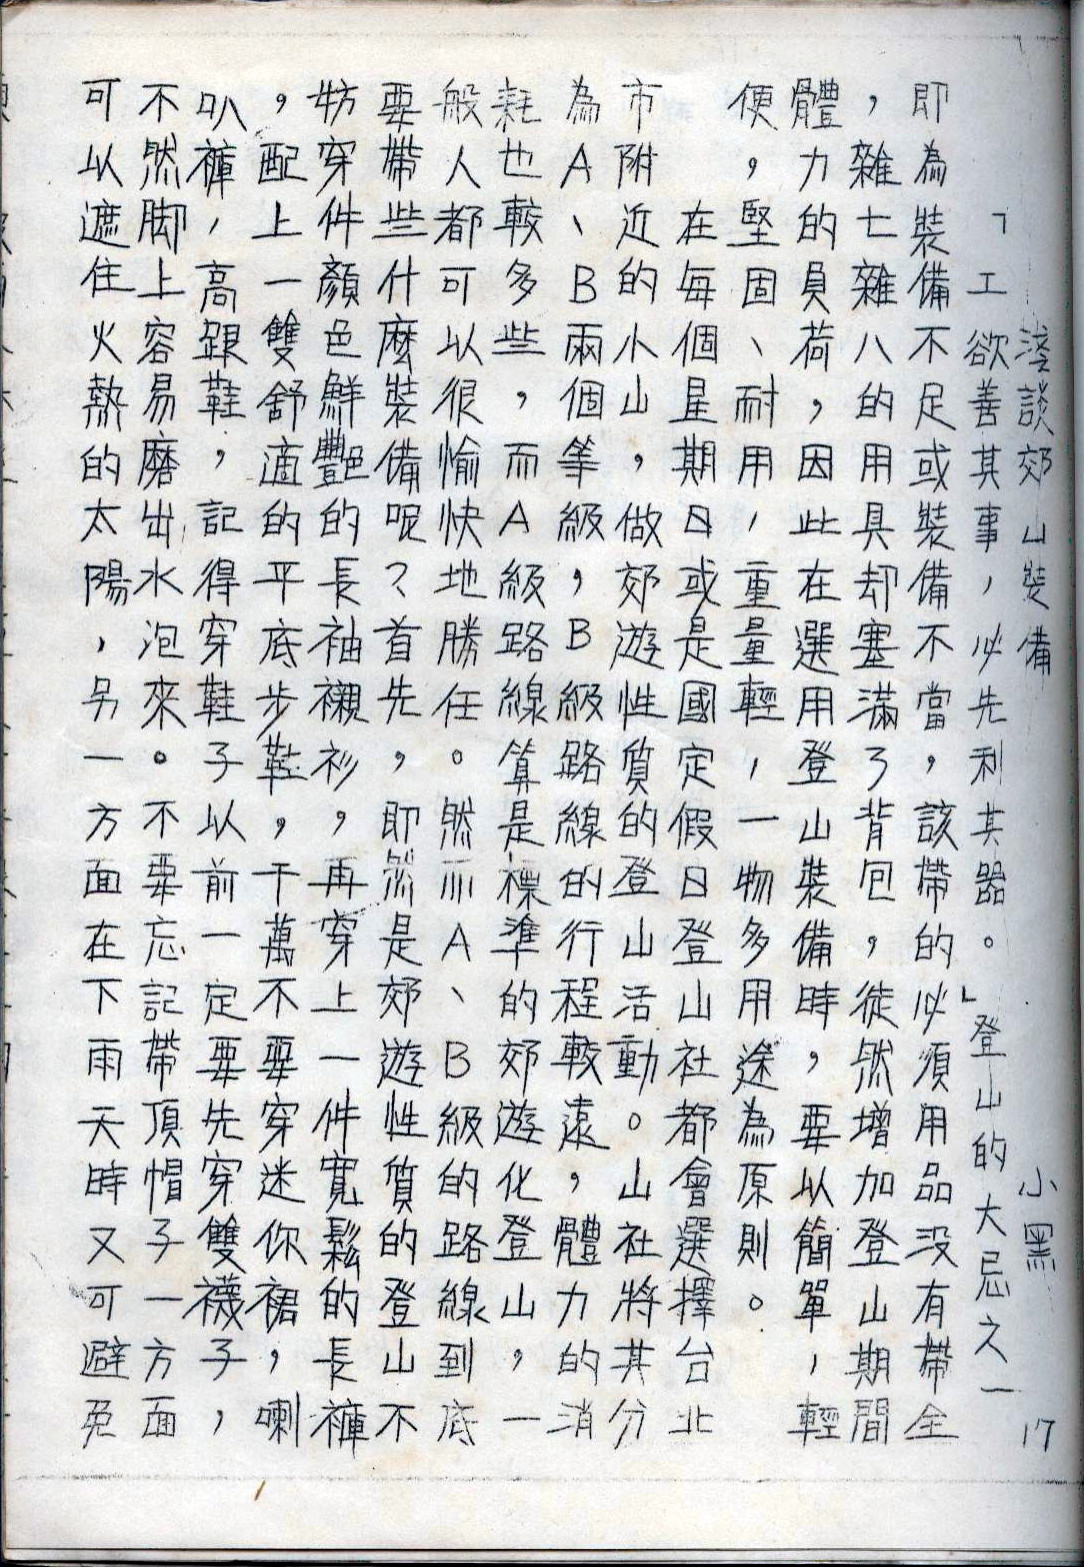 淺談郊山裝備 小黑 17
「工欲善其事，必先利其器。」登山的大忌之一
即為裝備不足或裝備不當，該帶的必須用品沒有帶全
，雜七雜八的用具却塞滿了背包，徒然增加登山期間
體力的員荷，因此在選用登山裝備時，要以簡單，輕
便，堅固、耐用，重量輕，一物多用途為原則。
在每個星期日或是國定假日登山社都會選擇台北
市附近的小山，做郊遊性質的登山活動。山社將其分
為A、B兩個等級，B級路線的行程較遠，體力的消
耗也較多些，而A級路線算是標準的郊遊化登山，一
般人都可以很愉快地勝任。然而A、B級的路線到底
要帶些什麼裝備呢？首先，即然是郊遊性質的登山不
妨穿件顏色鮮艷的長袖襯衫，再穿上一件寬鬆的長褲
，配上一雙舒適的平底步鞋，千萬不要穿迷你裙，喇
叭褲，高跟鞋，記得穿鞋子以前一定要先穿雙襪子，
不然脚上容易磨出水泡來。不要忘記帶頂帽子一方面
可以遮住火熱的太陽，另一方面在下雨天時又可避免